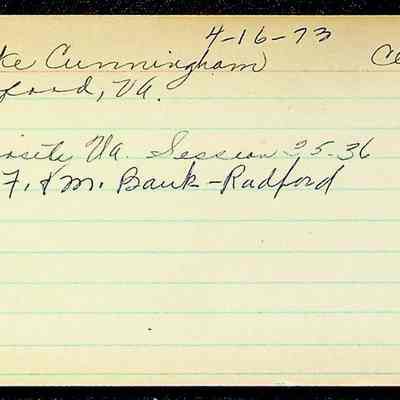 4-16-73
ke Cunningham Ce
ford, Va.
osite Va. Session 35-36
F. & M. Bank-Radford